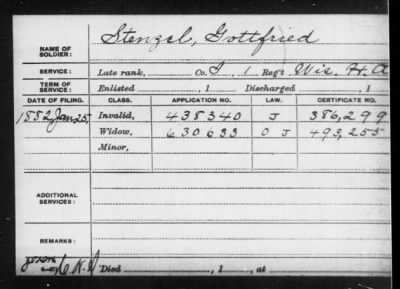 Stenzel, Gottfried
NAME OF SOLDIER:
SERVICE: Late rank, Co. I, 1 Reg't Wis. H.A
TERM OF SERVICE: Enlisted , 1 Discharged , 1
DATE OF FILING. CLASS. APPLICATION NO. LAW. CERTIFICATE NO.
1882 Jan 25 Invalid, 438340 J 386,299
Widow, 630633 O J 493,255
Minor,
ADDITIONAL SERVICES:
REMARKS:
Died , 1 , at